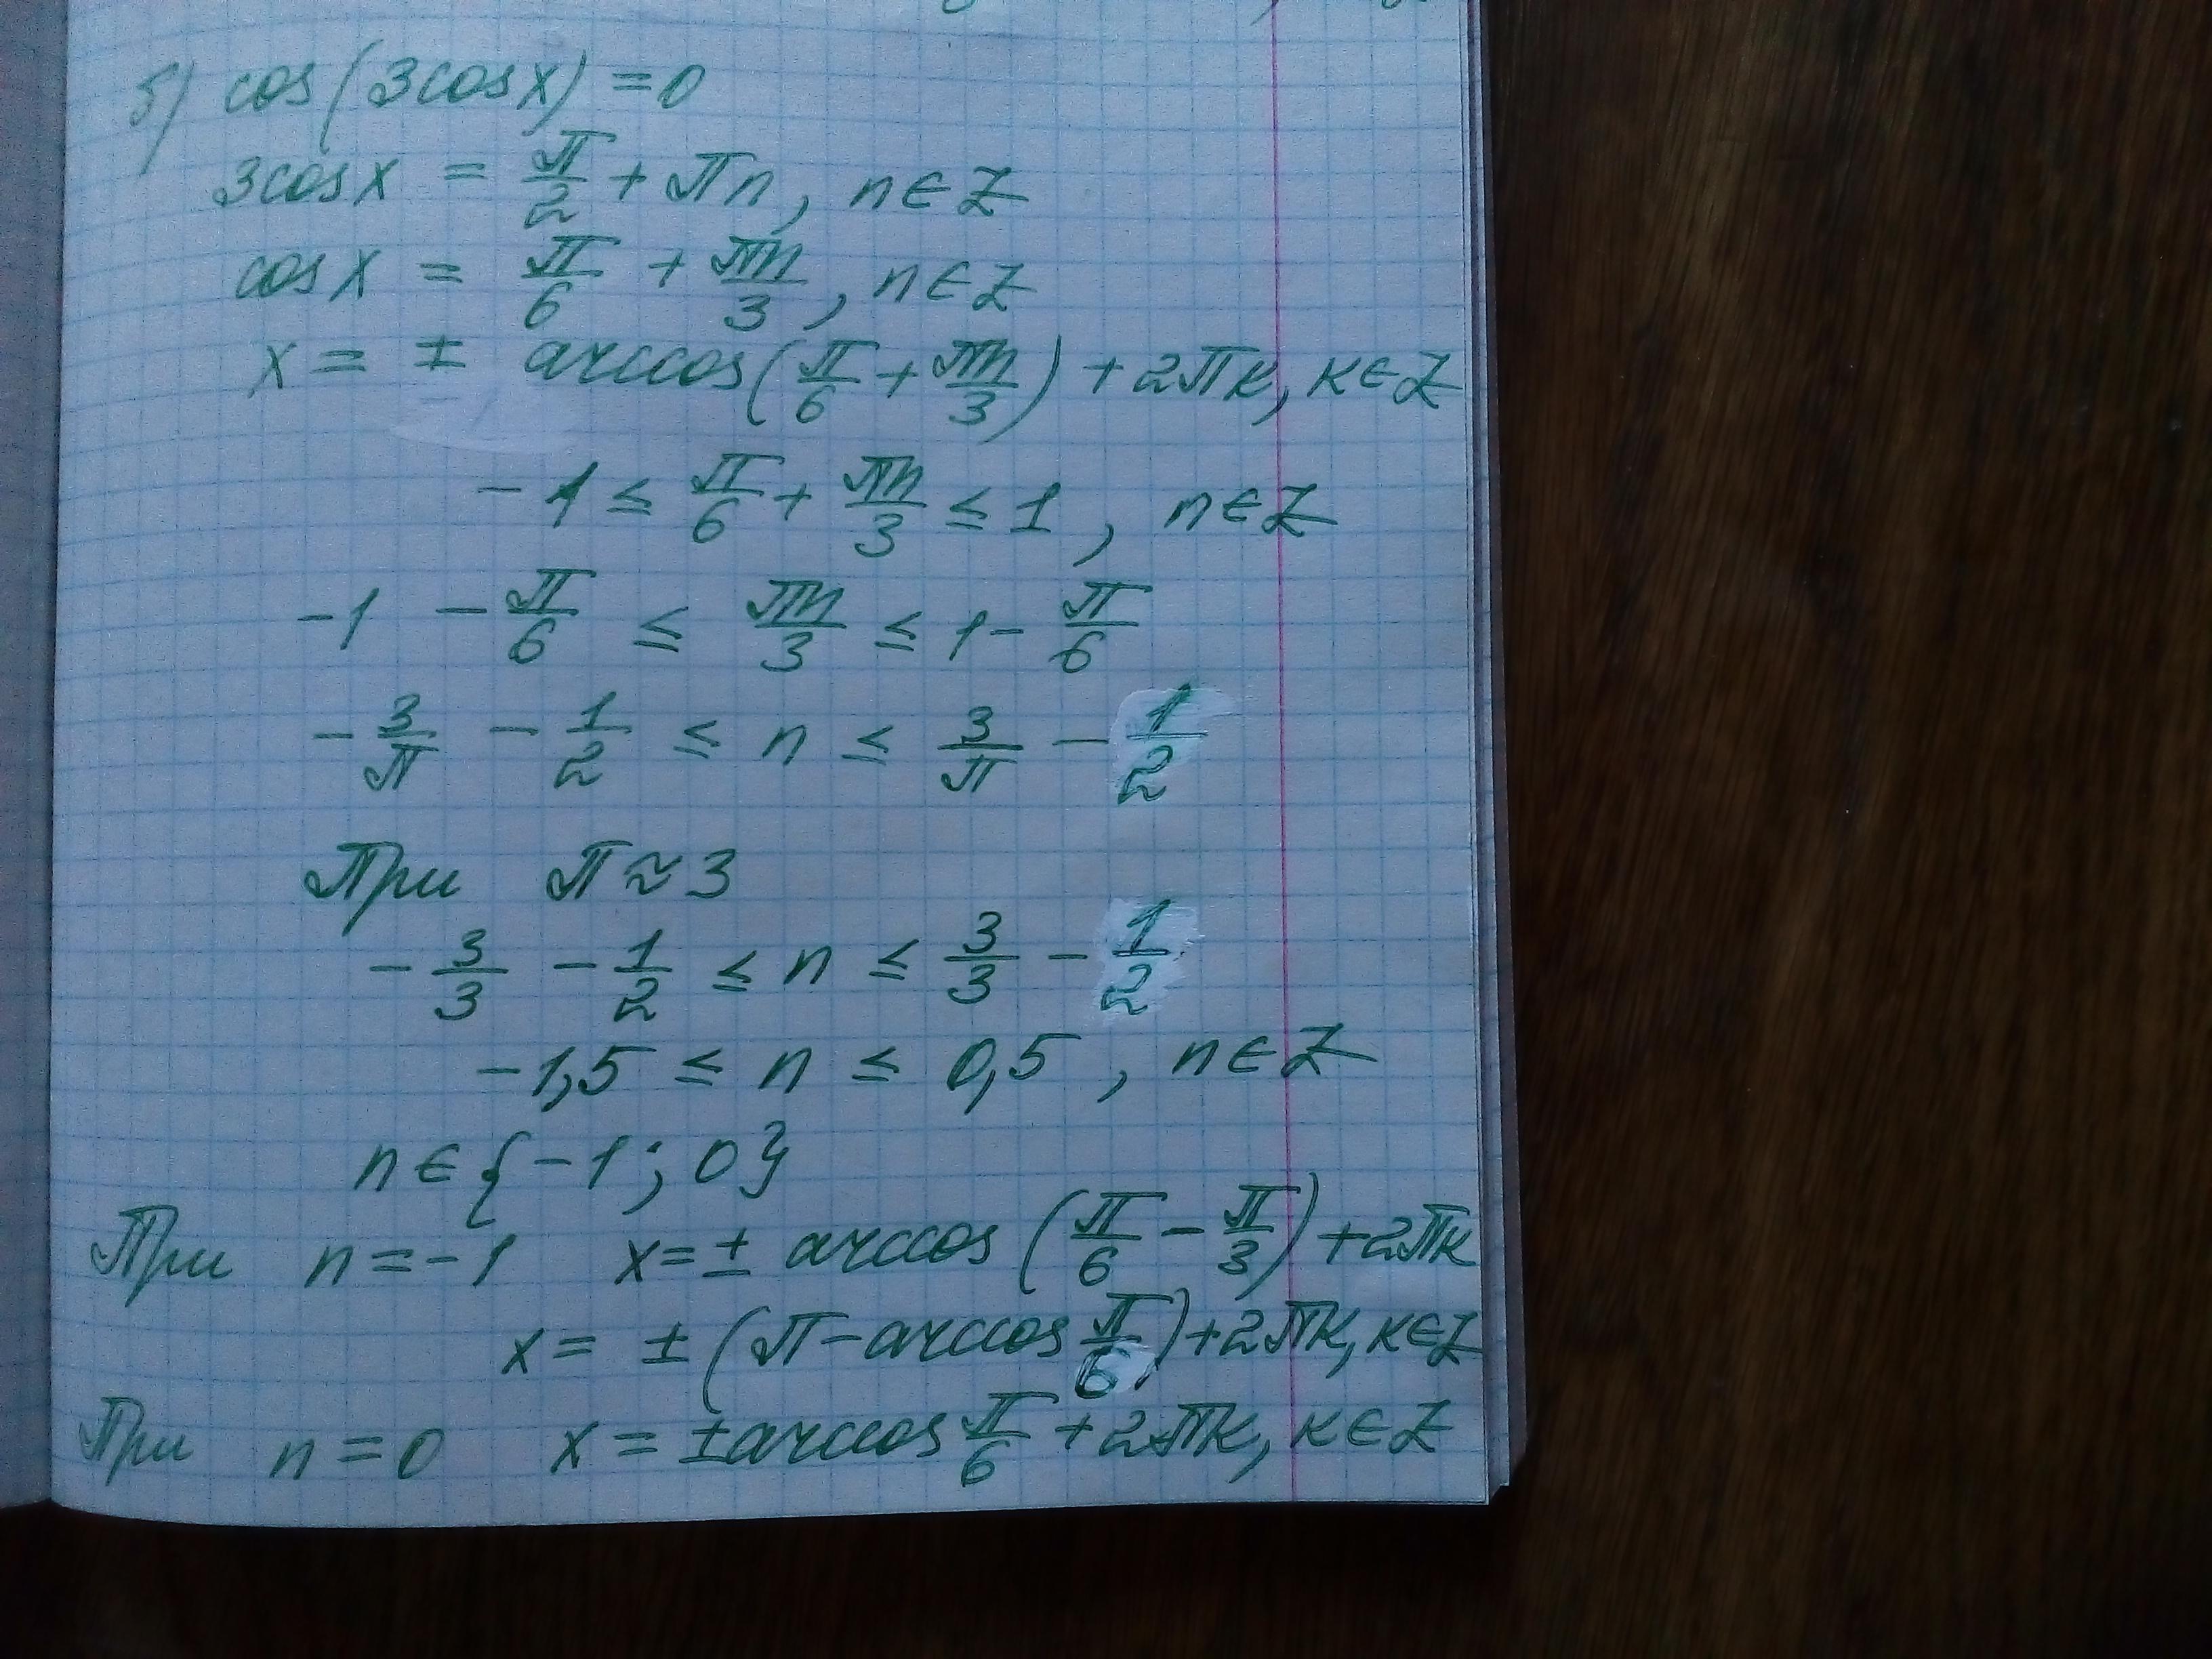 б) cos(3cosx) = 0
3cosx = π/2 + πn, n∈Z
cosx = π/6 + πn/3, n∈Z
x = ± arccos(π/6 + πn/3) + 2πk, k∈Z
-1 ≤ π/6 + πn/3 ≤ 1, n∈Z
-1 - π/6 ≤ πn/3 ≤ 1 - π/6
-3/π - 1/2 ≤ n ≤ 3/π - 1/2
При π≈3
-3/3 - 1/2 ≤ n ≤ 3/3 - 1/2
-1,5 ≤ n ≤ 0,5, n∈Z
n∈{-1; 0}
При n = -1 x = ± arccos(π/6 - π/3) + 2πk
x = ±(π - arccos π/6) + 2πk, k∈Z
При n = 0 x = ±arccos π/6 + 2πk, k∈Z